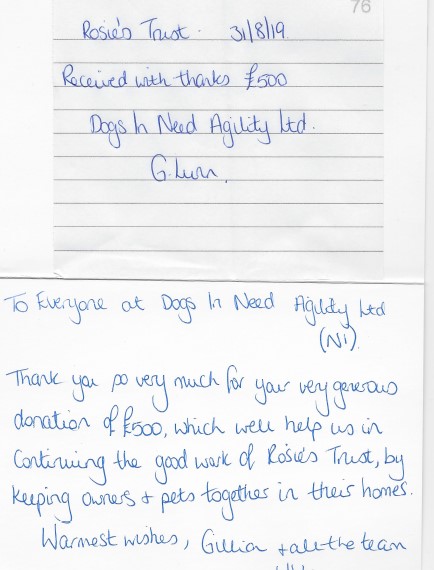 76
Rosie's Trust. 31/8/19
Received with thanks £500
Dogs In Need Agility Ltd.
To Everyone at Dogs In Need Agility Ltd
(NI).
Thank you so very much for your very generous
donation of £500, which well help us in
Continuing the good work of Rosie's Trust, by
keeping owners + pets together in their homes.
Warmest wishes, Gillian + all the team